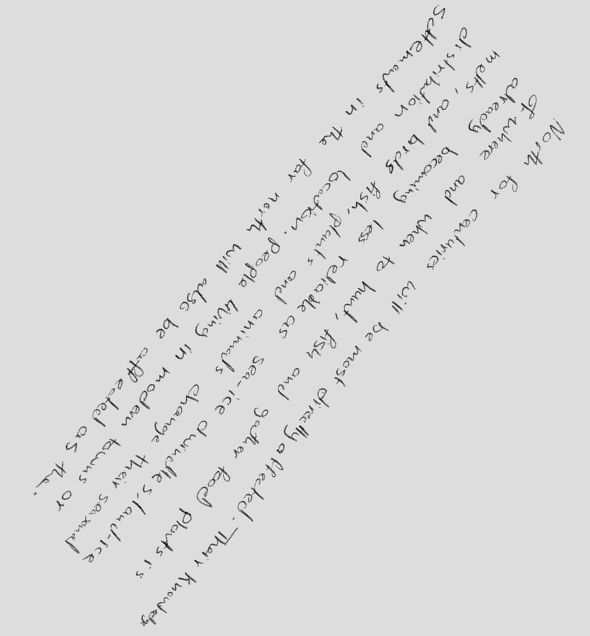 North for centuries will be most directly affected. Their knowledge
of where and when to hunt, fish and gather food plants is
already becoming less reliable as sea-ice dwindles, land-ice
melts, and birds fish, plants and animals change their seasonal
distribution and location. People living in modern towns or
settlements in the far north will also be affected as the.